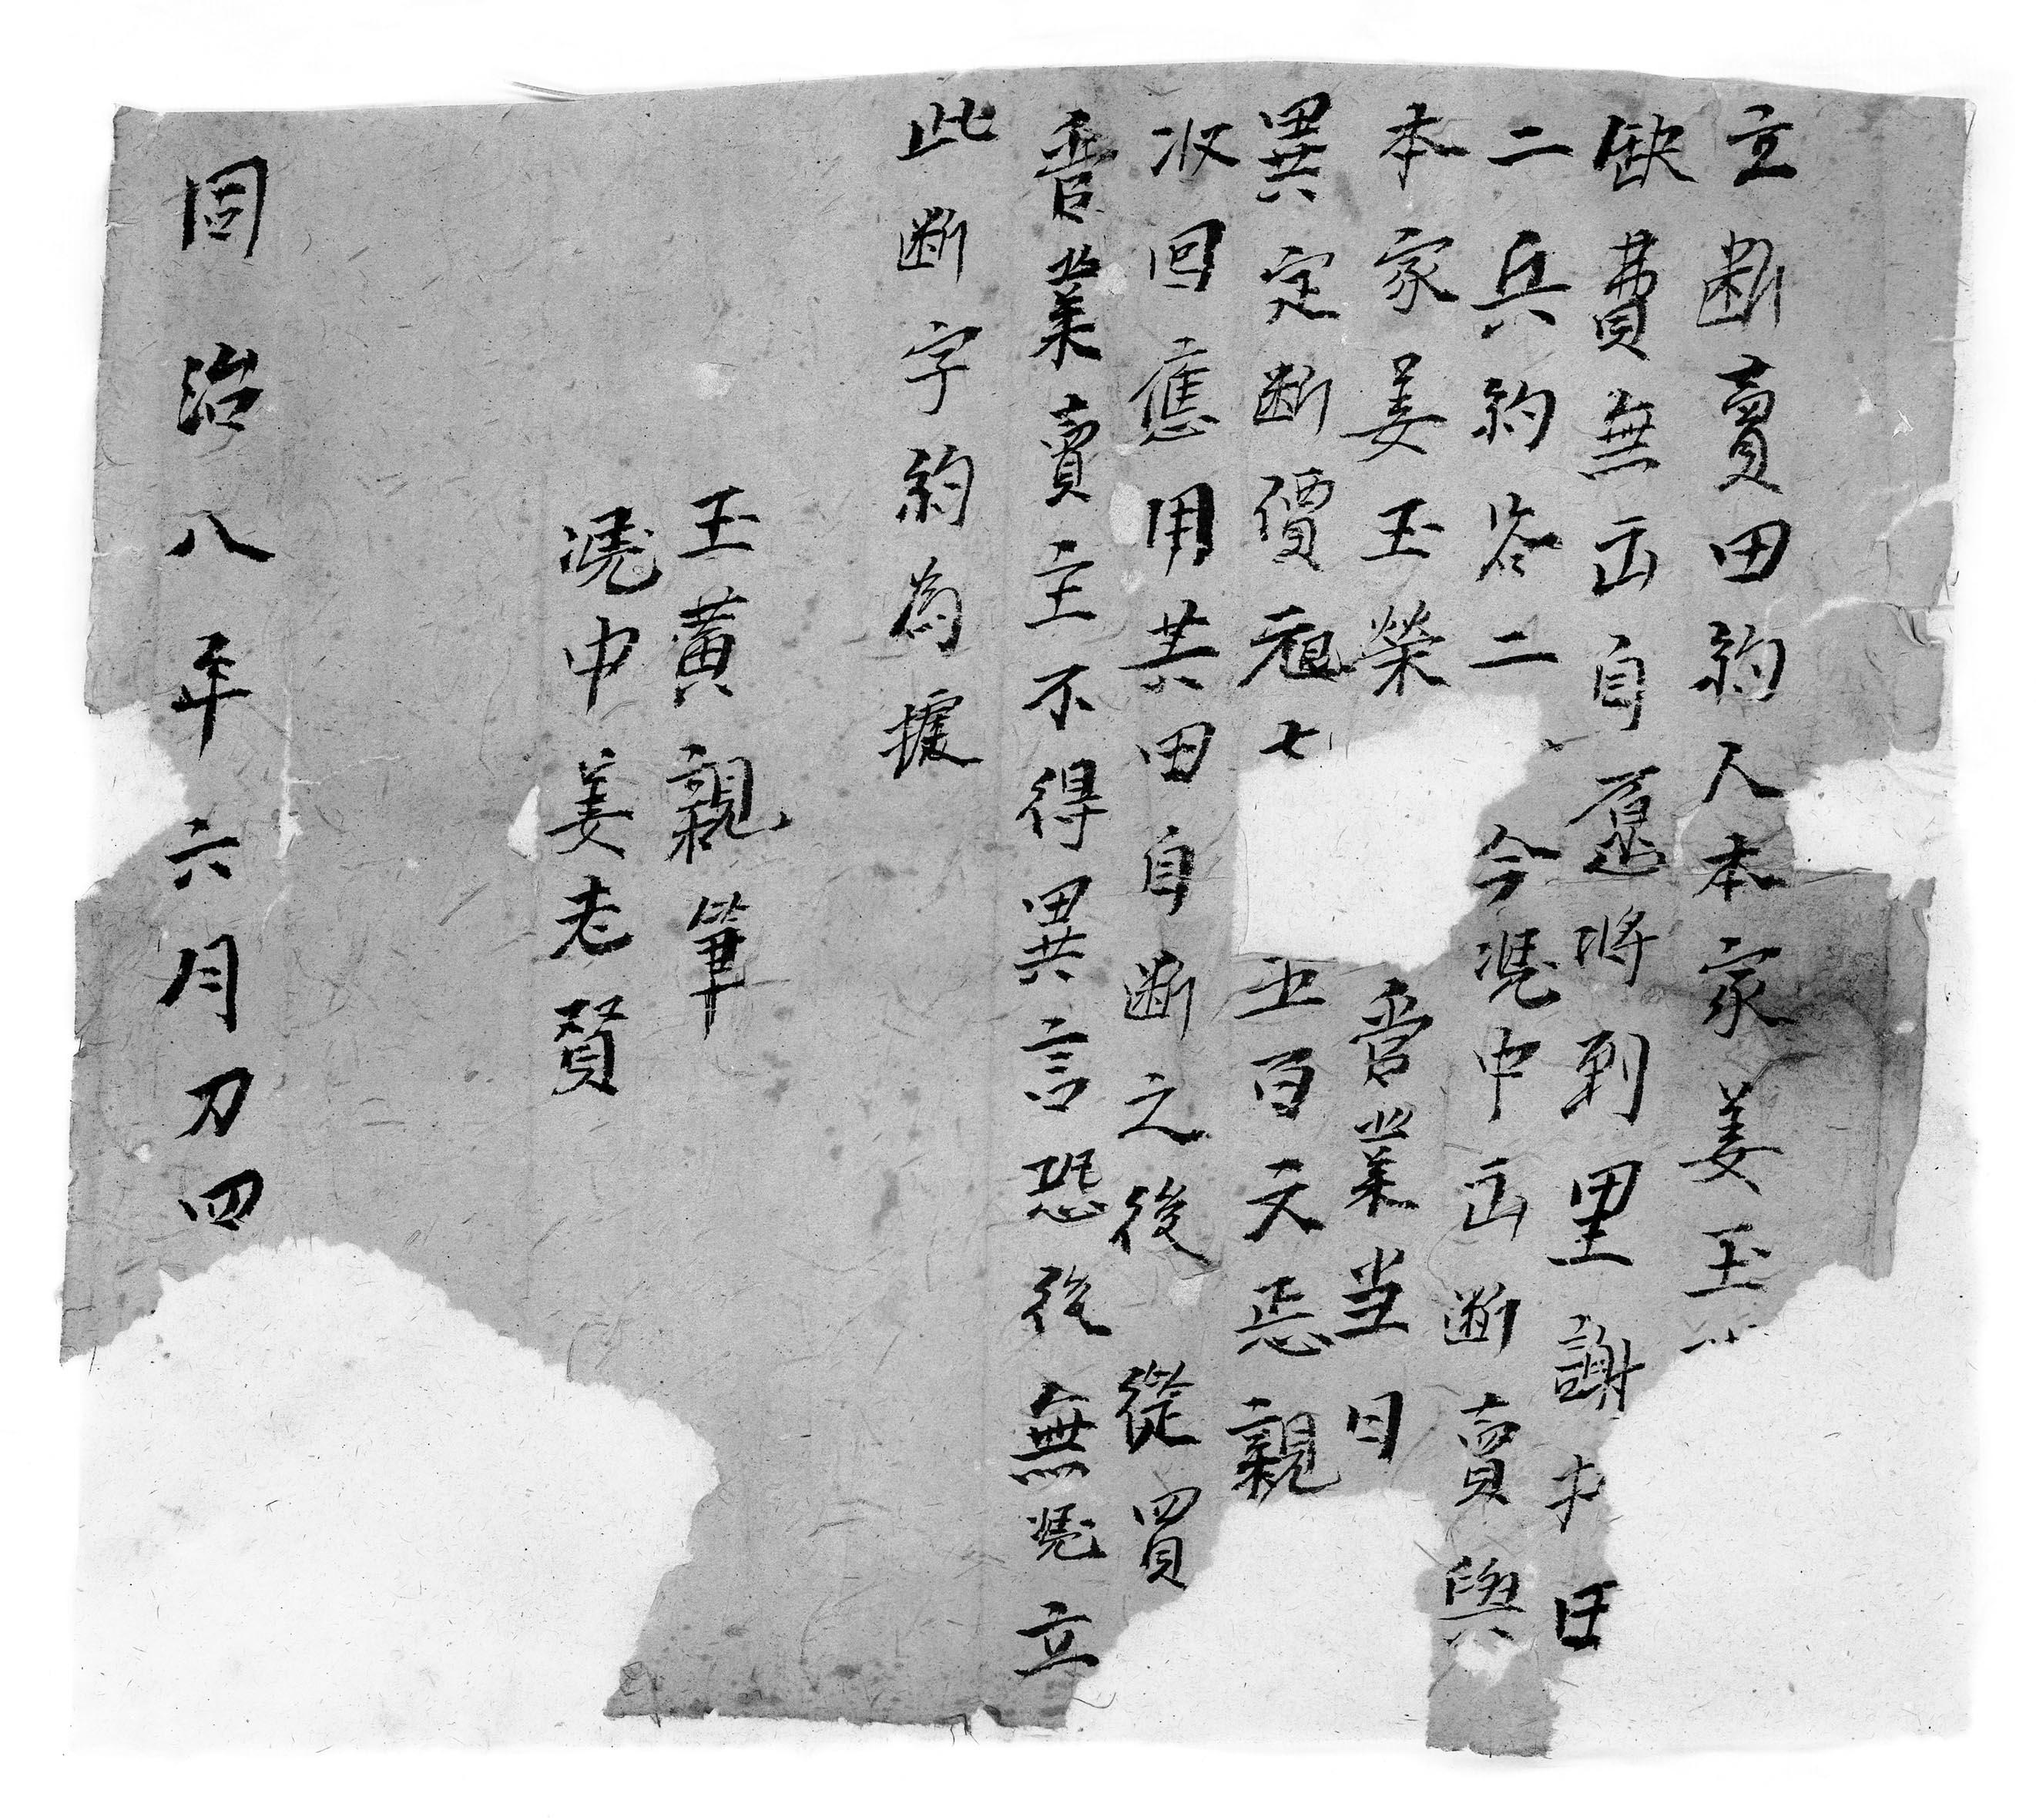 立断賣田約人本家姜玉
缺費無出自愿将到里謝
二兵約谷二 今凴中出断賣與
本家姜玉榮 管業当日
異定断價 七 五百文 親
收回應用其田自断之後從買
管業賣主不得異言恐後無凴立
此断字約為據
玉黄親筆
凴中姜老賢
同治八年六月 四